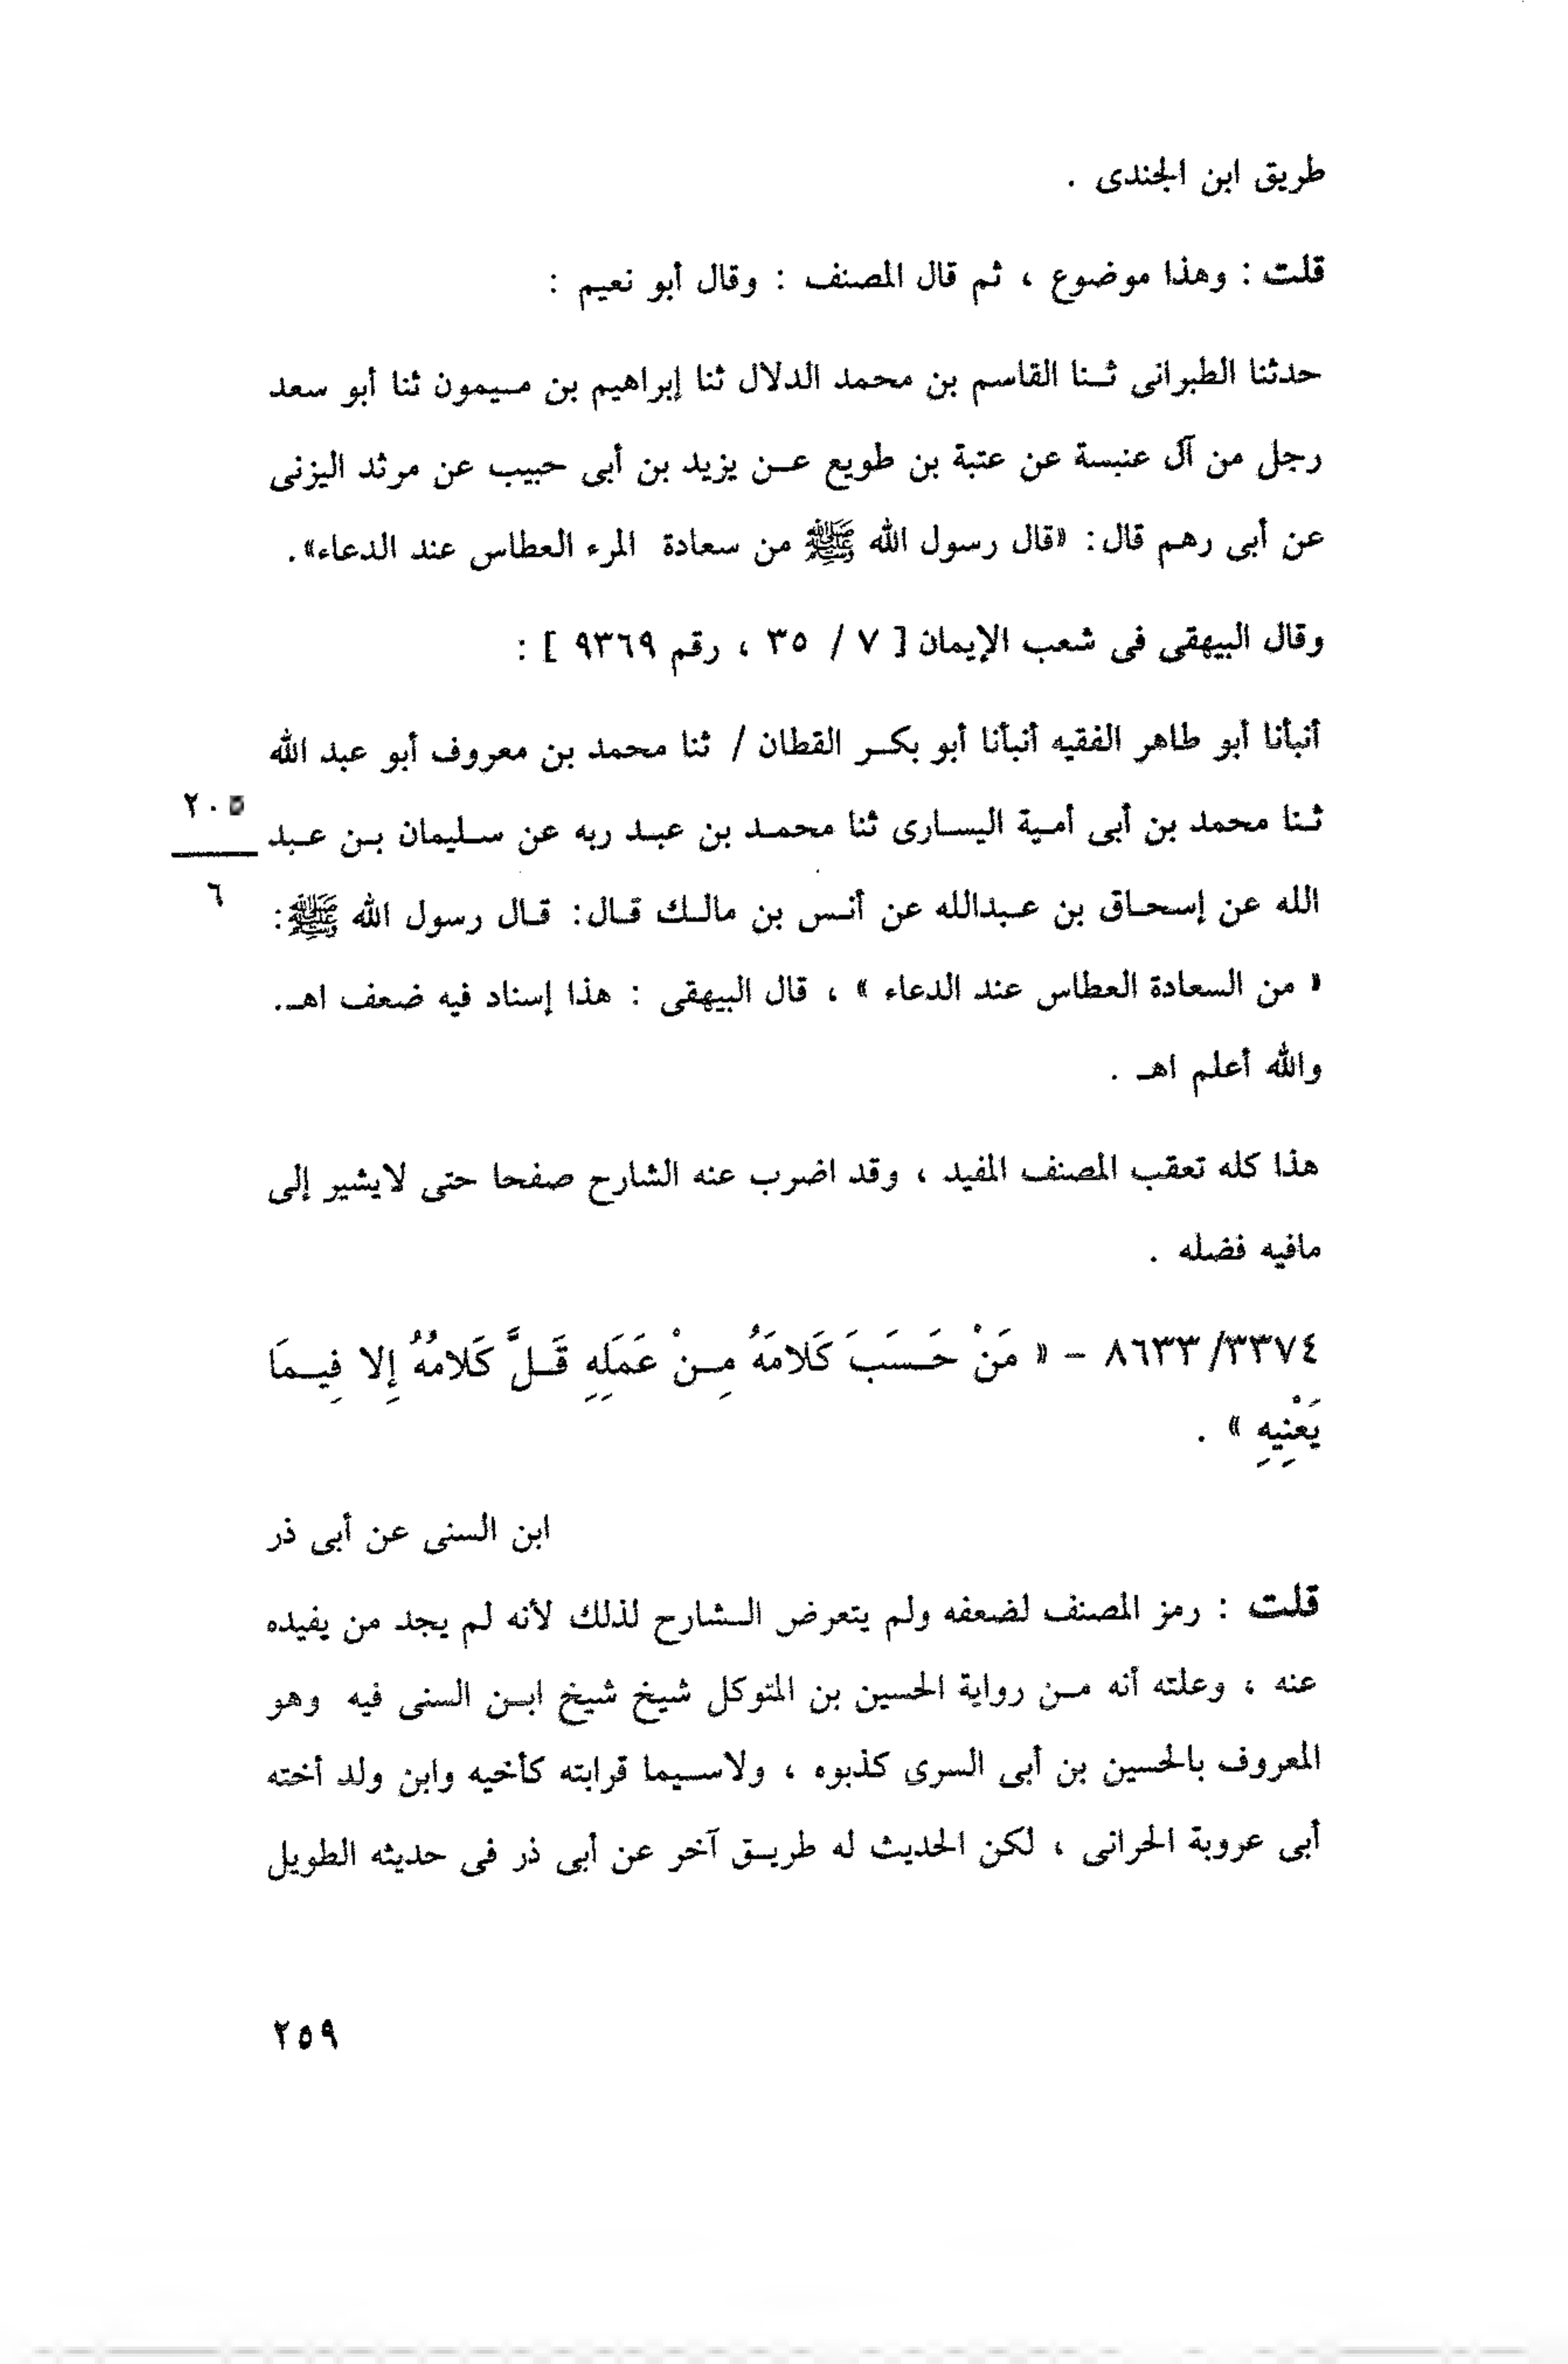 طريق ابن الجندى .
قلت : وهذا موضوع ، ثم قال المصنف : وقال أبو نعيم :
حدثنا الطبرانى ثنا القاسم بن محمد الدلال ثنا إبراهيم بن ميمون ثنا أبو سعد
رجل من آل عنبسة عن عتبة بن طويع عن يزيد بن أبى حبيب عن مرثد اليزنى
عن أبى رهم قال : «قال رسول الله ﷺ من سعادة المرء العطاس عند الدعاء».
وقال البيهقى فى شعب الإيمان [ ٧ / ٣٥ ، رقم ٩٣٦٩ ] :
أنبأنا أبو طاهر الفقيه أنبأنا أبو بكر القطان / ثنا محمد بن معروف أبو عبد الله
٢٠٥
ثنا محمد بن أبى أمية اليسارى ثنا محمد بن عبد ربه عن سليمان بن عبد
٦
الله عن إسحاق بن عبدالله عن أنس بن مالك قال: قال رسول الله ﷺ:
« من السعادة العطاس عند الدعاء » ، قال البيهقى : هذا إسناد فيه ضعف اهـ.
والله أعلم اهـ .
هذا كله تعقب المصنف المفيد ، وقد اضرب عنه الشارح صفحا حتى لايشير إلى
مافيه فضله .
٨٦٣٣/٣٣٧٤ – « مَنْ حَسَبَ كَلامَهُ مِنْ عَمَلِهِ قَلَّ كَلامُهُ إِلا فِيمَا
يَعْنِيهِ » .
ابن السنى عن أبى ذر
قلت : رمز المصنف لضعفه ولم يتعرض الشارح لذلك لأنه لم يجد من يفيده
عنه ، وعلته أنه من رواية الحسين بن المتوكل شيخ شيخ ابن السنى فيه وهو
المعروف بالحسين بن أبى السرى كذبوه ، ولاسيما قرابته كأخيه وابن ولد أخته
أبى عروبة الحرانى ، لكن الحديث له طريق آخر عن أبى ذر فى حديثه الطويل
٢٥٩